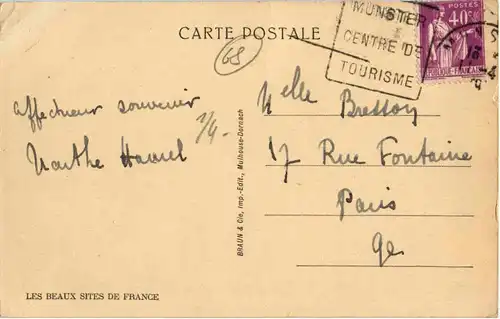 CARTE POSTALE
MUNSTER
CENTRE DE
TOURISME
POSTES
40c
REPUBLIQUE FRANÇAISE
68
affectueux souvenir
Marthe Hamel
1/4-
BRAUN & Cie, Imp.-Edit., Mulhouse-Dornach
Melle Bresson
17 Rue Fontaine
Paris
9e
LES BEAUX SITES DE FRANCE